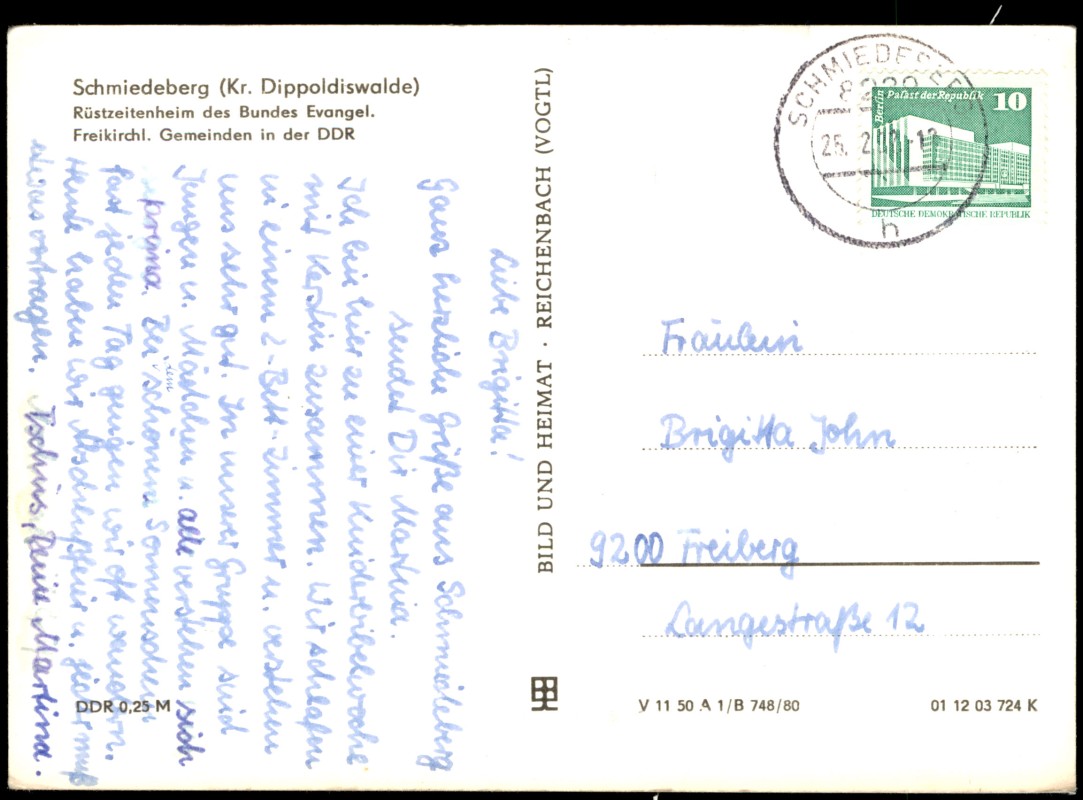 Schmiedeberg (Kr. Dippoldiswalde)
Rüstzeitenheim des Bundes Evangel.
Freikirchl. Gemeinden in der DDR
Liebe Brigitta!
Ganz herzliche Grüße aus Schmiedeberg
sendet Dir Martina.
Ich bin hier zu einer Kinderbibelwoche
mit Kerstin zusammen. Wir schlafen
in einem 2-Bett-Zimmer u. verstehen
uns sehr gut. In unserer Gruppe sind
Jungen u. Mädchen u. alle verstehen sich
prima. Bei dem schönen Sonnenschein
fast jeden Tag gingen wir oft wandern.
Heute haben wir Abschlußfeier u. jeder muß
etwas vortragen. Tschüs, Deine Martina.
DDR 0,25 M
BILD UND HEIMAT · REICHENBACH (VOGTL)
SCHMIEDEBERG
h
Berlin Palast der Republik 10
DEUTSCHE DEMOKRATISCHE REPUBLIK
Fräulein
Brigitta John
9200 Freiberg
Langestraße 12
V 11 50 A 1/B 748/80
01 12 03 724 K